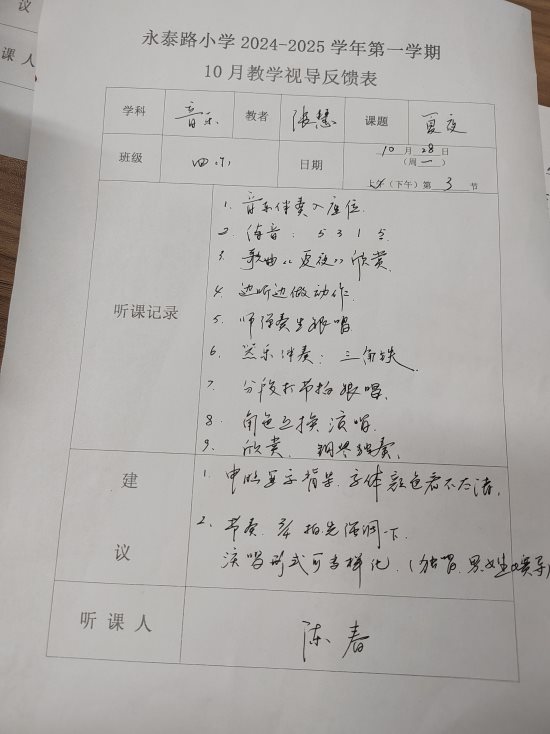 永泰路小学 2024-2025 学年第一学期
10 月教学视导反馈表
学科 音乐 教者 张慧 课题 夏夜
班级 四 日期 10 月 28 日
(周一)
上午(下午)第 3 节
听课记录
1. 音乐伴奏入座位.
2. 练音: 5 3 1 5
3. 歌曲《夏夜》欣赏.
4. 边听边做动作.
5. 师弹奏生跟唱.
6. 器乐伴奏: 三角铁.
7. 分段打节拍跟唱.
8. 角色互换演唱.
9. 欣赏. 钢琴独奏.
建议
1. 背景.字体颜色看不太清.
2. 节奏. 3/4 拍先强调一下.
演唱形式可多样化.(独唱.男女生
听课人 陈春
议
听课人